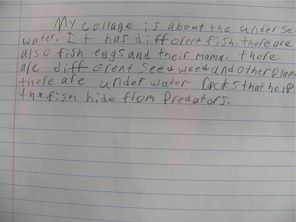 My collage is about the under se
water. It has different fish. there are
also fish eggs and their mama. there
are different see weed and other plan
there are under water rocks that help
the fish hide from predators.